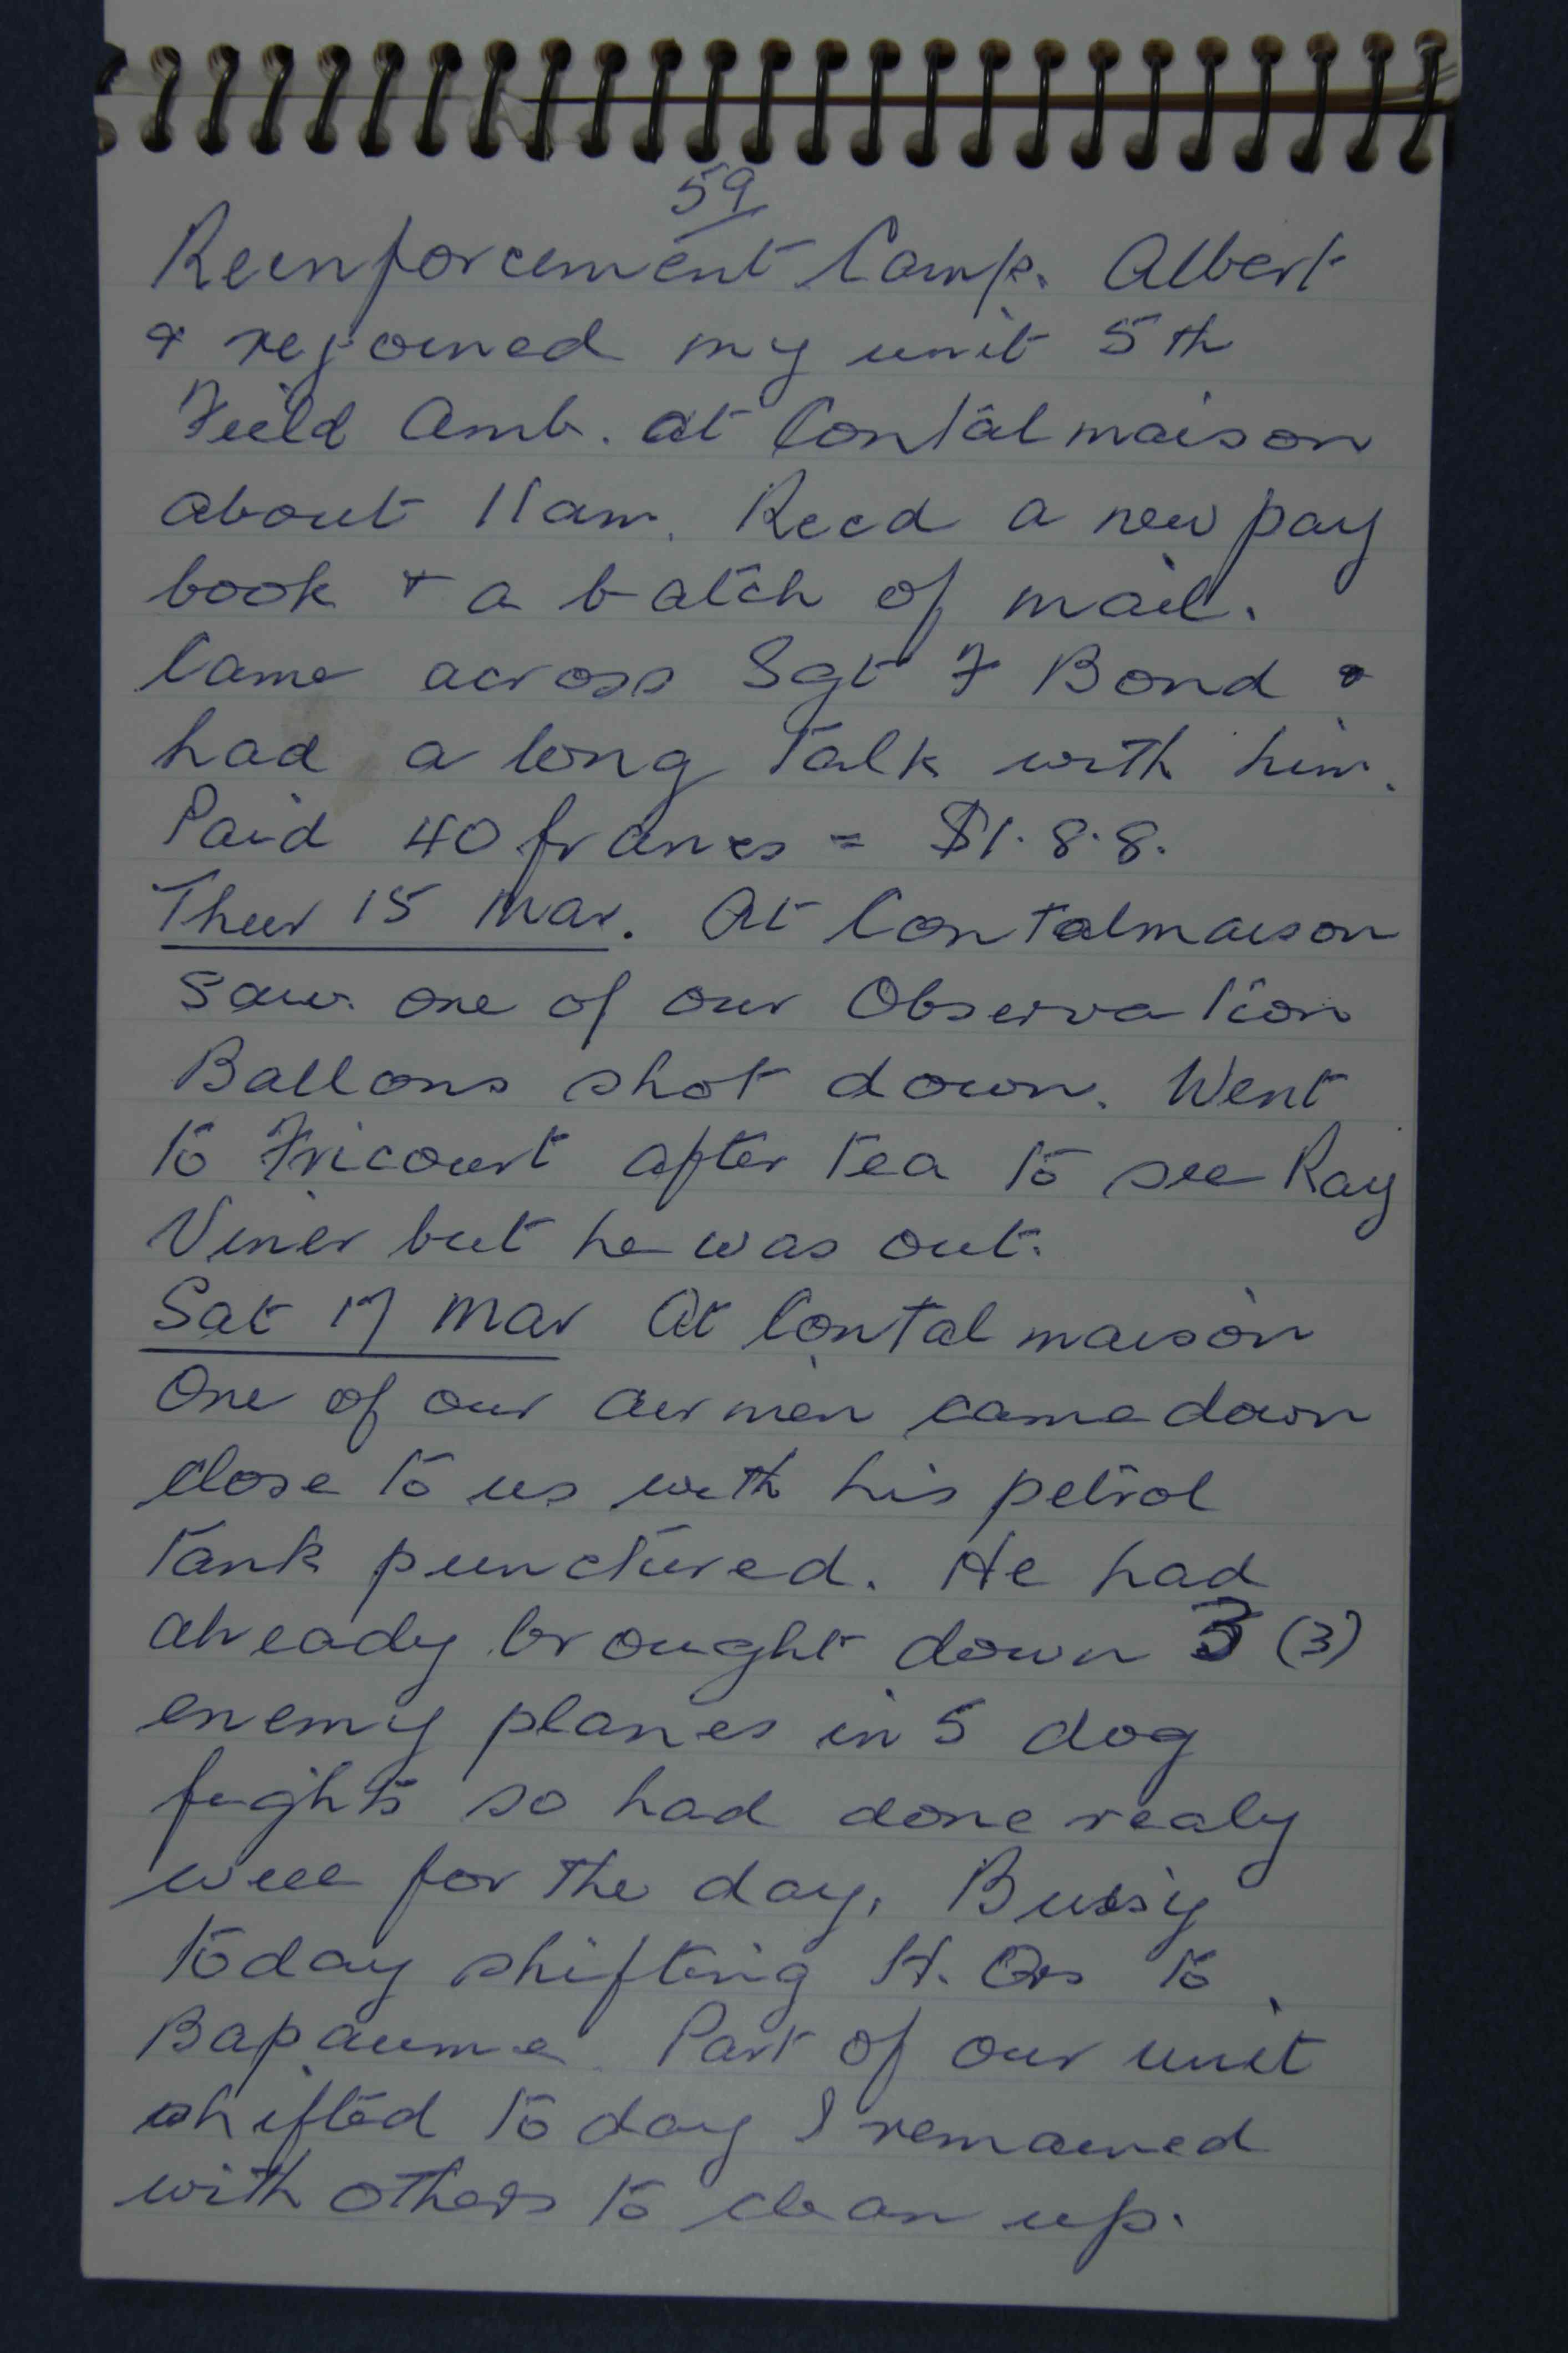 59
Reinforcement Camp. Albert
& rejoined my unit 5th
Field Amb. at Contalmaison
about 11am. Recd a new pay
book & a batch of mail.
Came across Sgt F Bond &
had a long talk with him.
Paid 40 francs = $1.8.8.
Thur 15 Mar. At Contalmaison
saw one of our Observation
Ballons shot down. Went
to Fricourt after tea to see Ray
Viner but he was out.
Sat 17 Mar At Contalmaison
One of our airmen came down
close to us with his petrol
tank punctured. He had
already brought down 3 (3)
enemy planes in 5 dog
fights so had done realy
well for the day, Bussy
today shifting H. Qrs to
Bapaume Part of our unit
shifted to day I remained
with others to clean up.